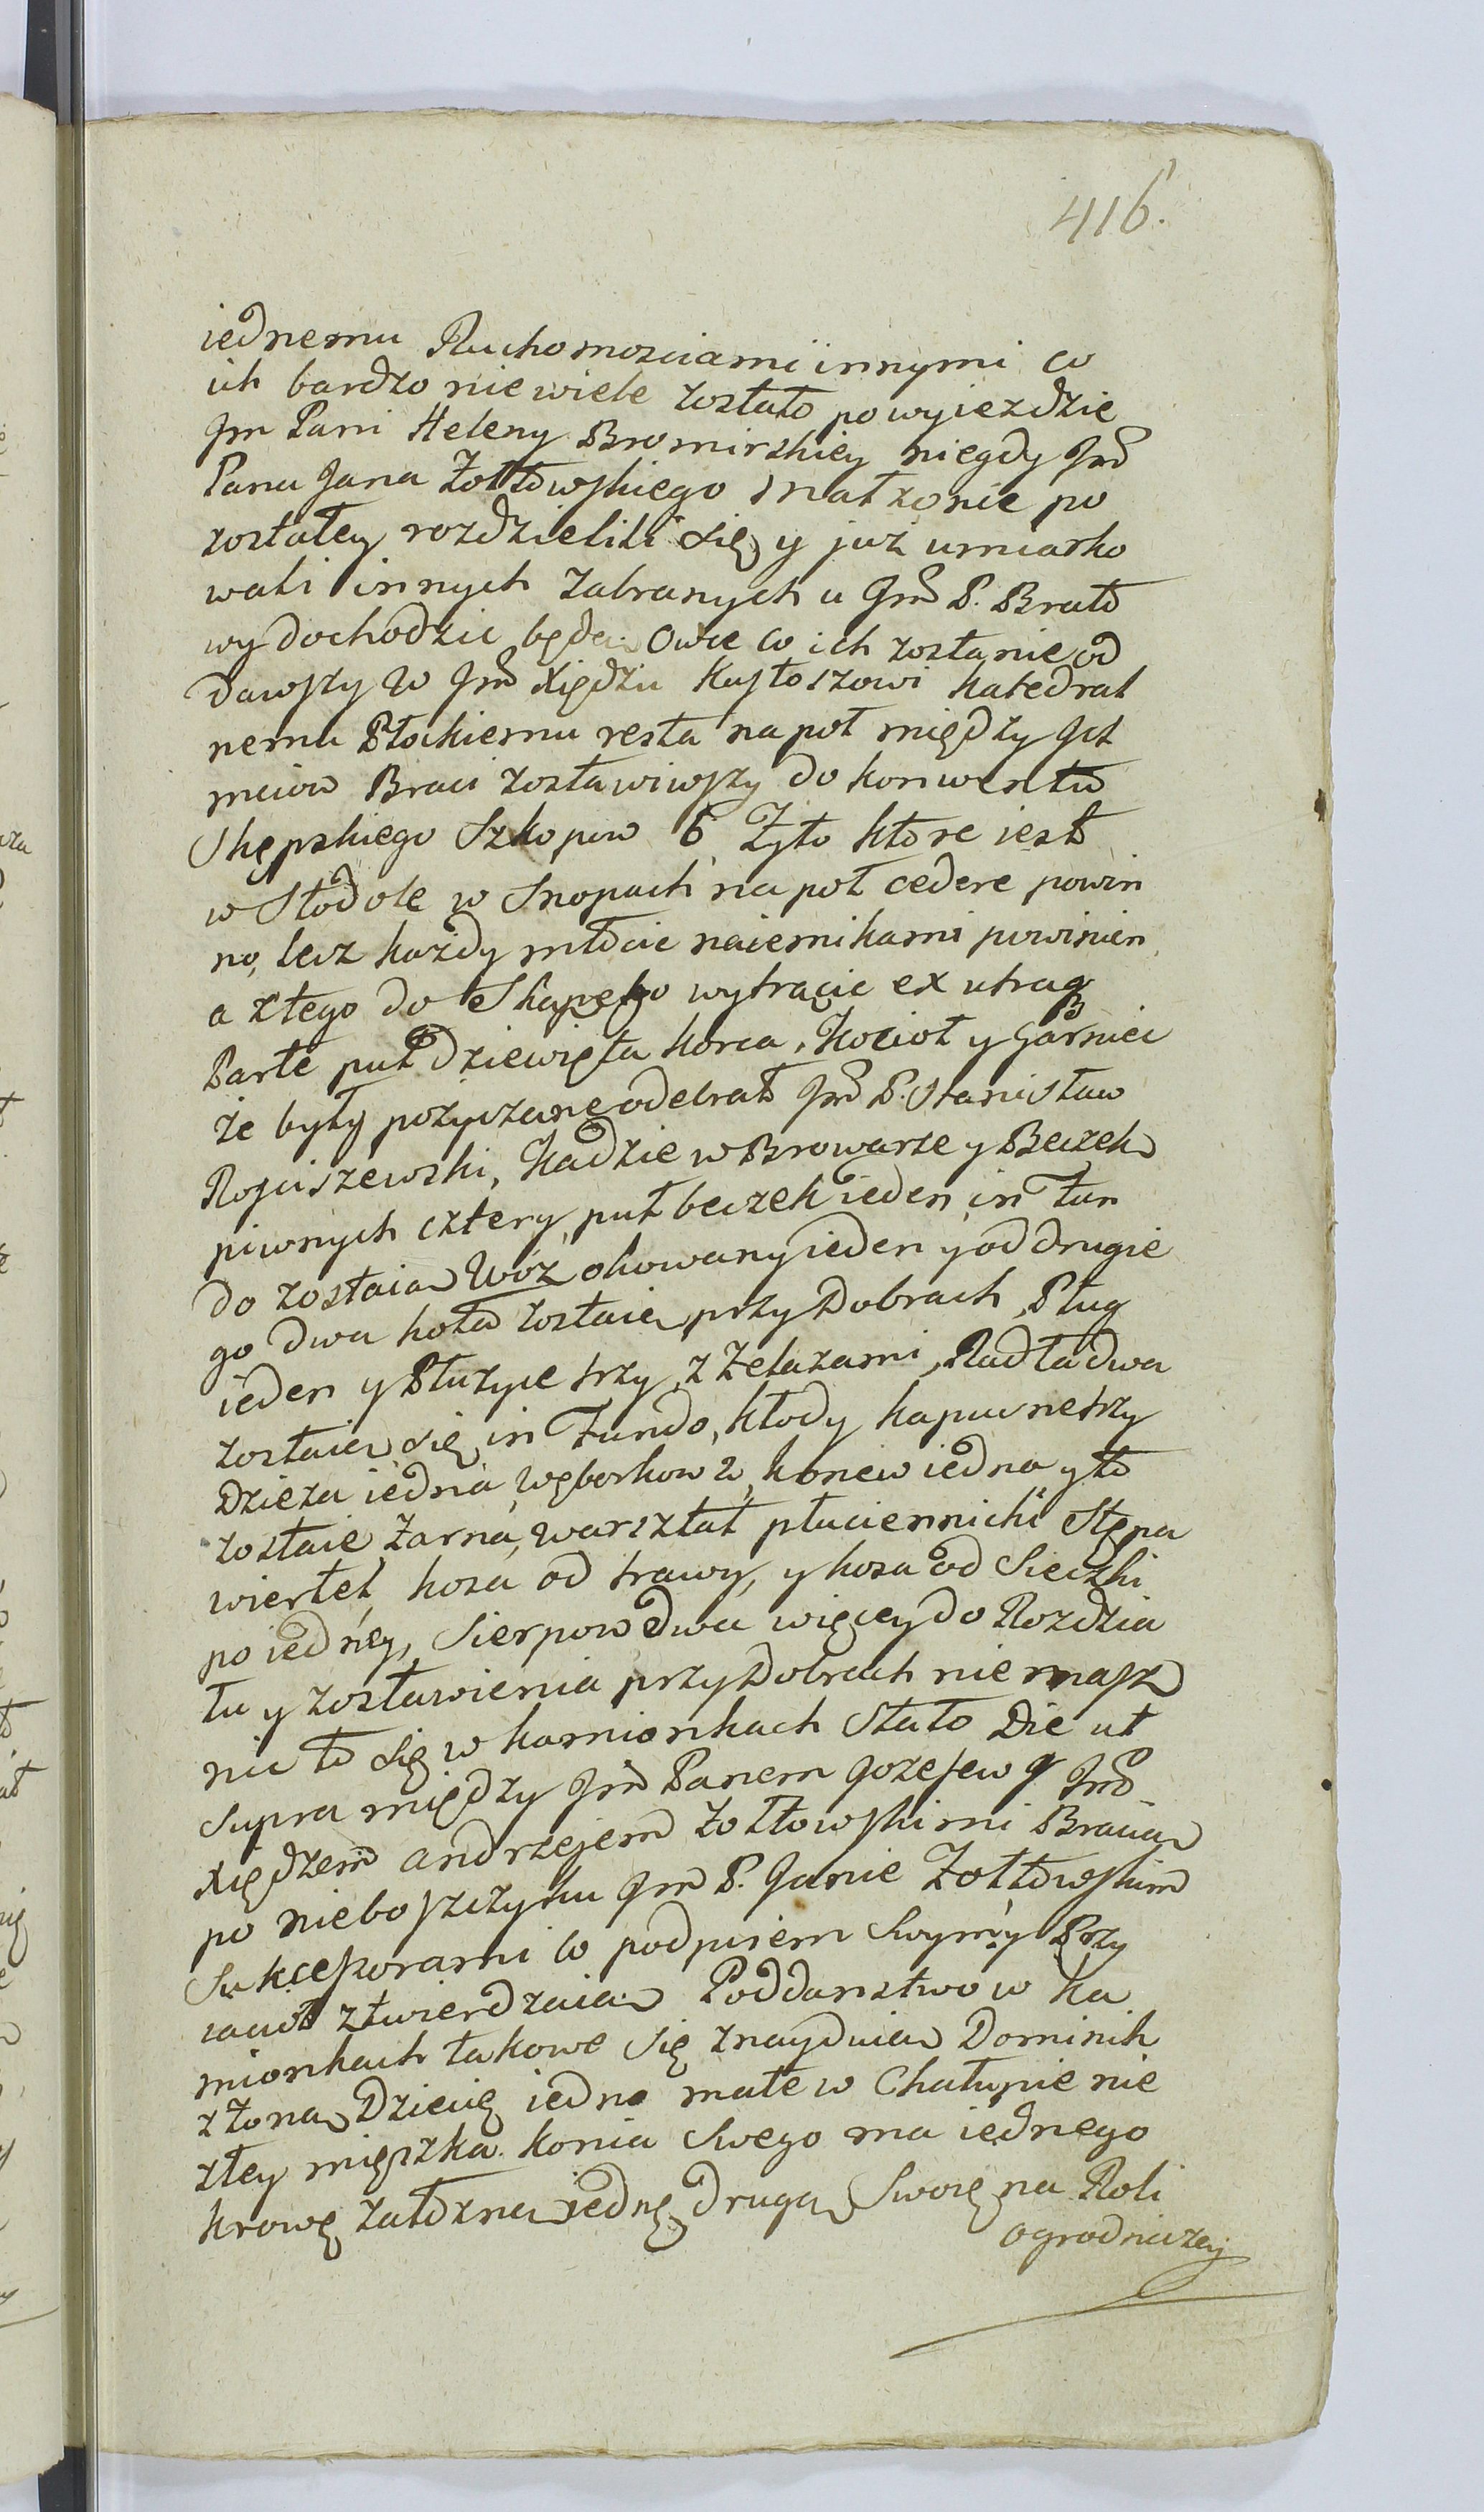 416.
iednemu Ruchomosciami innymi co
ich bardzo niewiele zostało po wyjezdzie
Jm Pani Heleny Bromirskiey niegdy Jmć
Pana Jana Zołtowskiego małzonie po
zostałey rozdzielili się y już umiarko
wali innych zabranych u Jmć P. Brato
wy dochodzic będą. Owce co ich zostanie od
dawszy W Jmć Xiędzu Kustoszowi Katedral
nemu Płockiemu resta na poł między Ich
mciow Braci zostawiwszy do konwentu
Skępskiego Szkopow 6 Zyto ktore iest
w Stodole w Snopach na poł cedere powin
no, lecz kazdy młocic naiemikami powinien
a ztego do Skąpego wytrącic ex utraq
Parte puł dziewięta korca, Kocioł y Garniec
że były pożyczane odebrał Jmć P. Stanisław
Rosciszewski, Kadzie w Browarze y Beczek
piwnych cztery, puł beczek ieden in Fun
do zostaią Wóz okowany ieden y od drugie
go dwa koła zostaie przy Dobrach, Pług
ieden y Płużyce trzy z Zelazami, Radła dwa
zostaią się in Fundo, kłody kapusne trzy
Dzieza iedna, węborkow 2, konew iedna y to
zostaie Zarna, warsztat płuciennicki Stępa
wiertel, kosa od trawy, y kosa od Sieczki
po iedney, Sierpow dwa więcey do Rozdzia
łu y zostawienia przy Dobrach nie masz
nic to się w kamionkach Stało Die ut
Supra między Jmć Panem Jozefem y Jmć
Xiędzem Andrzejem Zołtowskimi Bracią
po nieboszczyku Jmć P. Janie Zołtowskim
Sukcessorami co podpisem Swym y Przy
iacioł ztwierdzaią Poddanstwo w Ka
mionkach takowe się znayduią Dominik
z Zoną Dziecię iedno małe w Chałupie nie
złey mięszka. Konia Swego ma iednego
krowę załozną iednę drugą Swoię na Roli
ogrodniczey